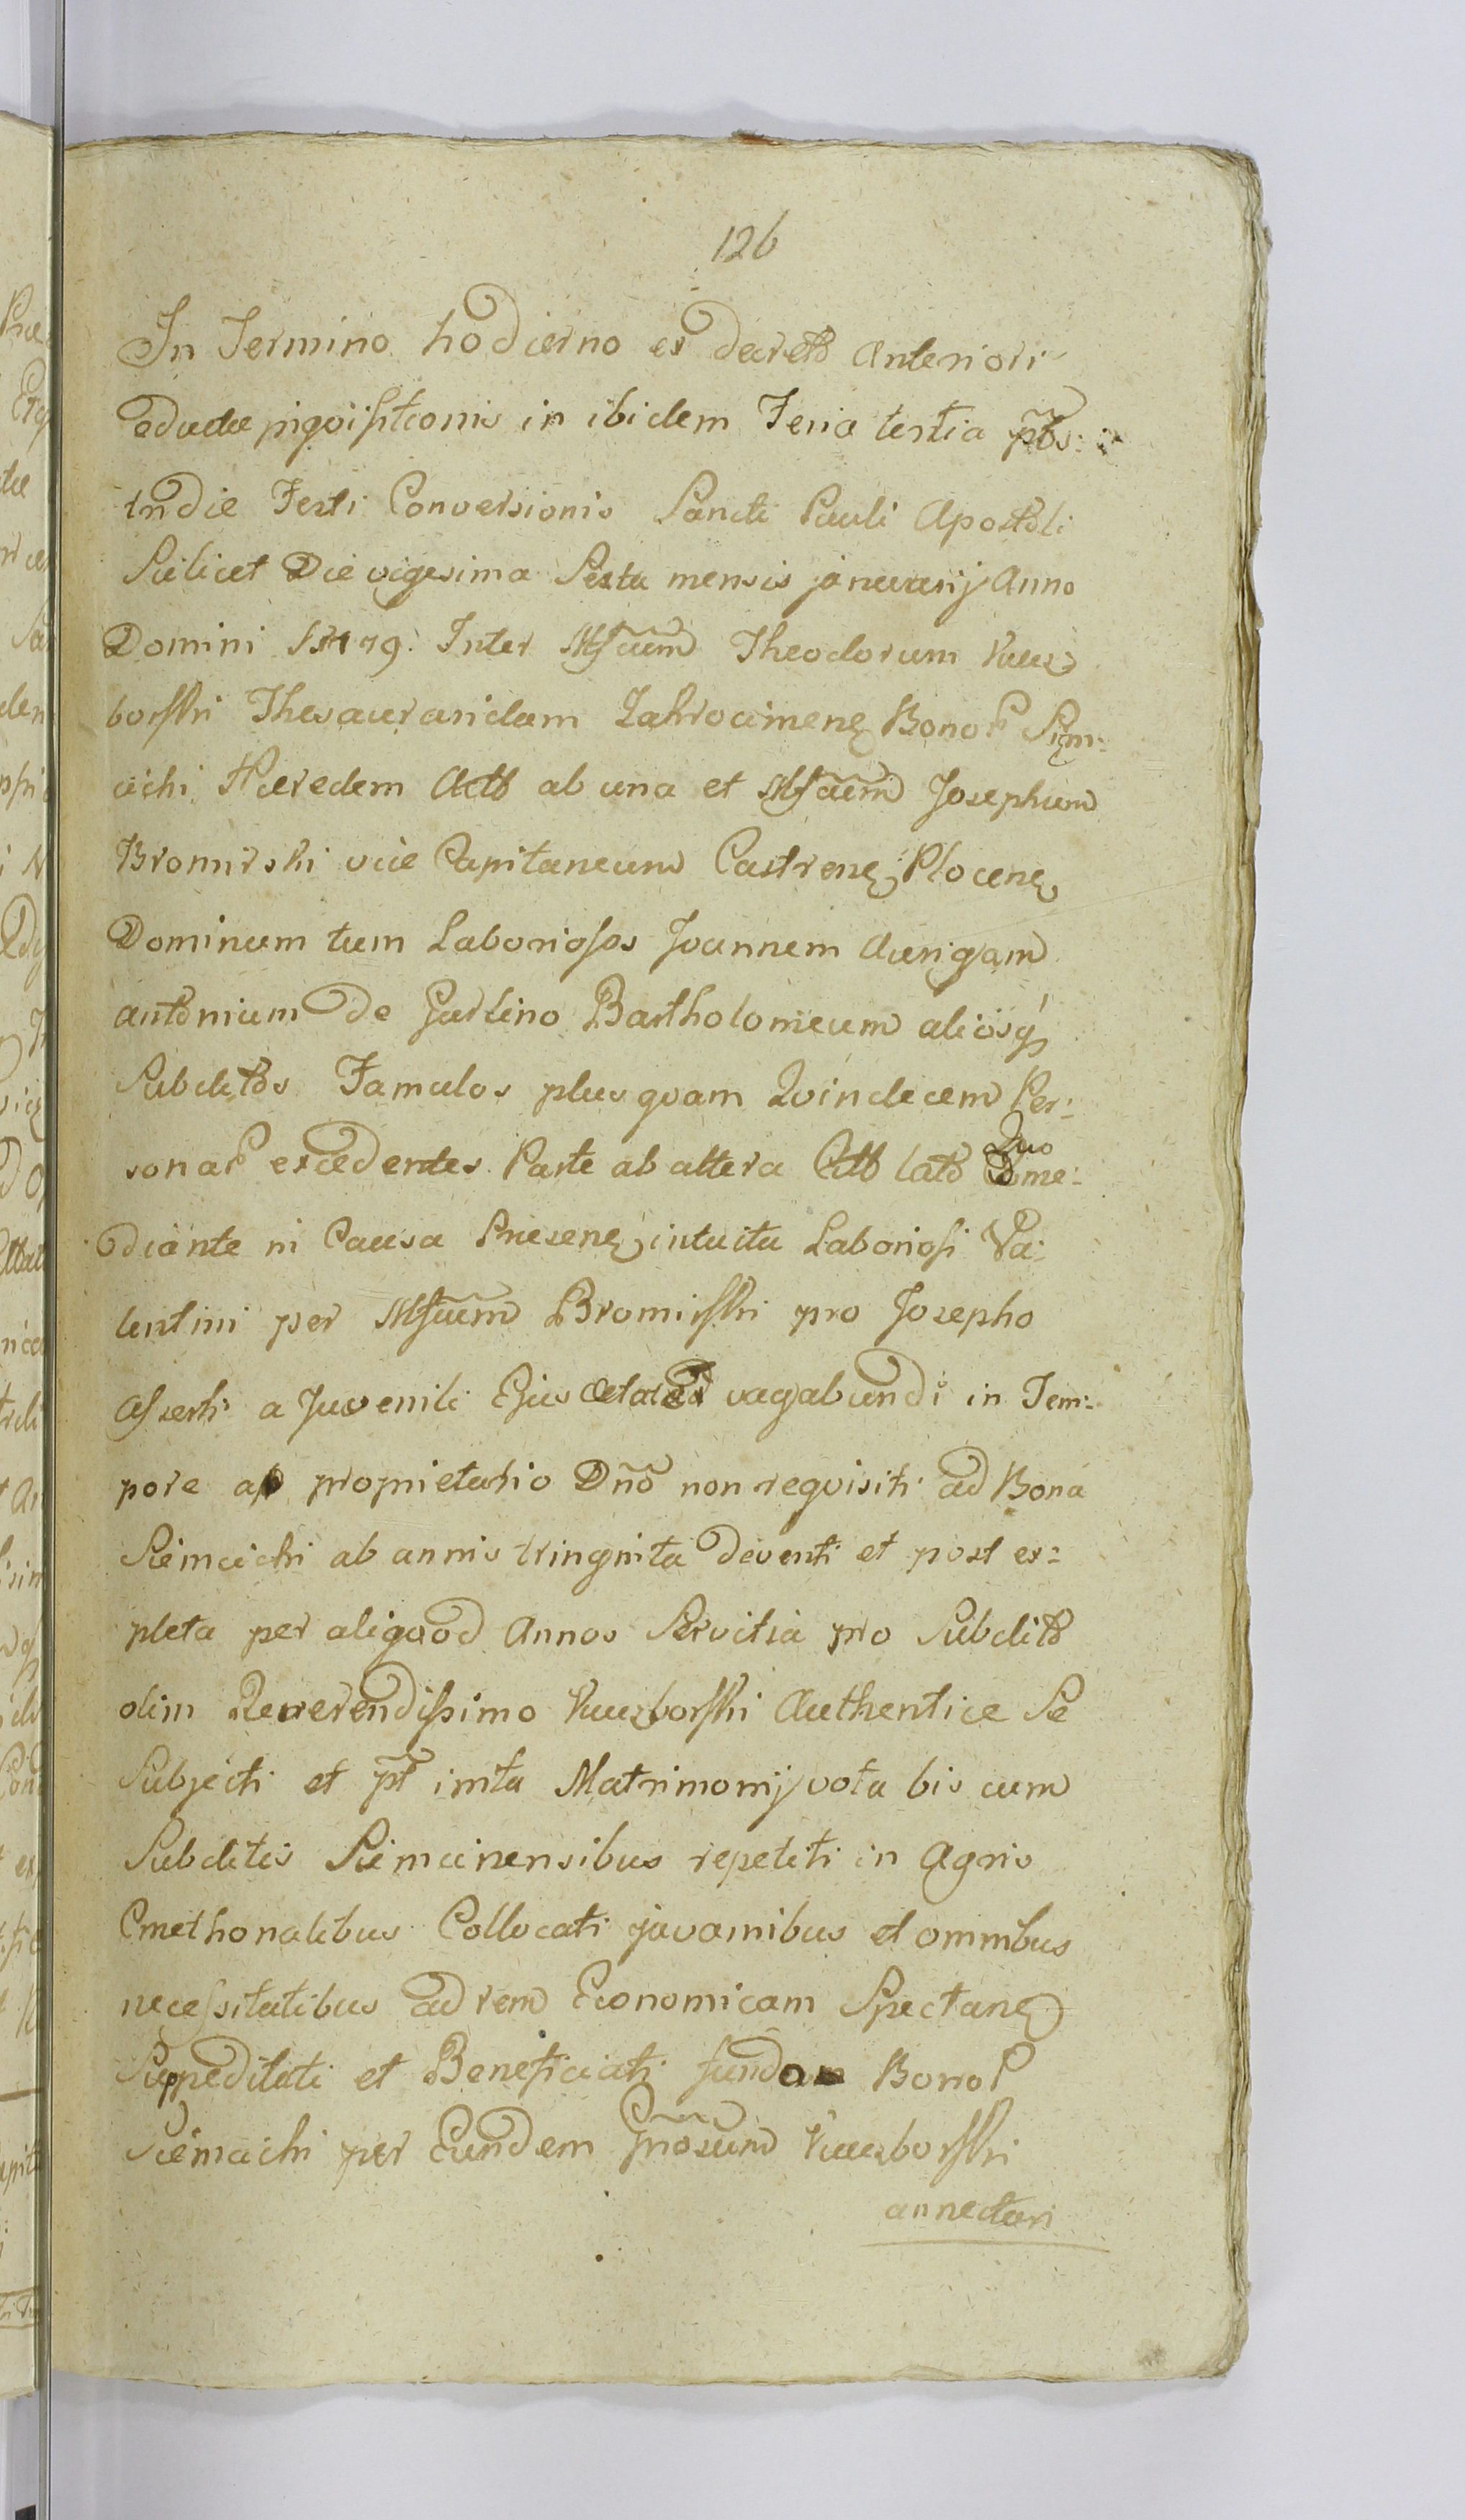 126
In Termino hodierno ex decreto anteriori
eductae in ibidem Feria tertia
in die Festi Conversionis Sancti Pauli Apostoli
Scilicet Die vigesima Sexta mensis januarij Anno
Domini Inter Mfcum Theodorum Kucz
borski Thesauraridam Zakrocimenę Bonor Siem:
uchi Haeredem Actt ab una et Mfcum Josephum
Bromirski vice Capitaneum Castrenę Plocenę
Dominum tum Laboriosos Joannem Aurigam
Antonium de Bartholomeum aliosq
Subditos Famulos plus quam Quindecem Per:
sonar excedentes Parte ab altera Citt lato Quo me:
diante in Causa Presenę intuitu Laboriosi Va:
lentini per Mfcum Bromirski pro Josepho
asserti a Juvenili Ejus vagabundi in Tem:
pore a proprietario Dno non requisiti ad Bona
Siemuchi ab annis tringnita deventi et post ex:
pleta per aliquod Annos Servitia pro Subdito
olim Reverendissimo Kuczborski Authentice Se
Subjecti et pt inita Matrimonij vota bis cum
Subditis repetiti in Agris
Cmethonalibus Collocati juvamibus et omnibus
necessitatibus ad rem Economicam Spectanę
Suppeditati et Beneficiati fundo Bonor
Siemuchi per Eundem Gnosum Kuczborski
annectari